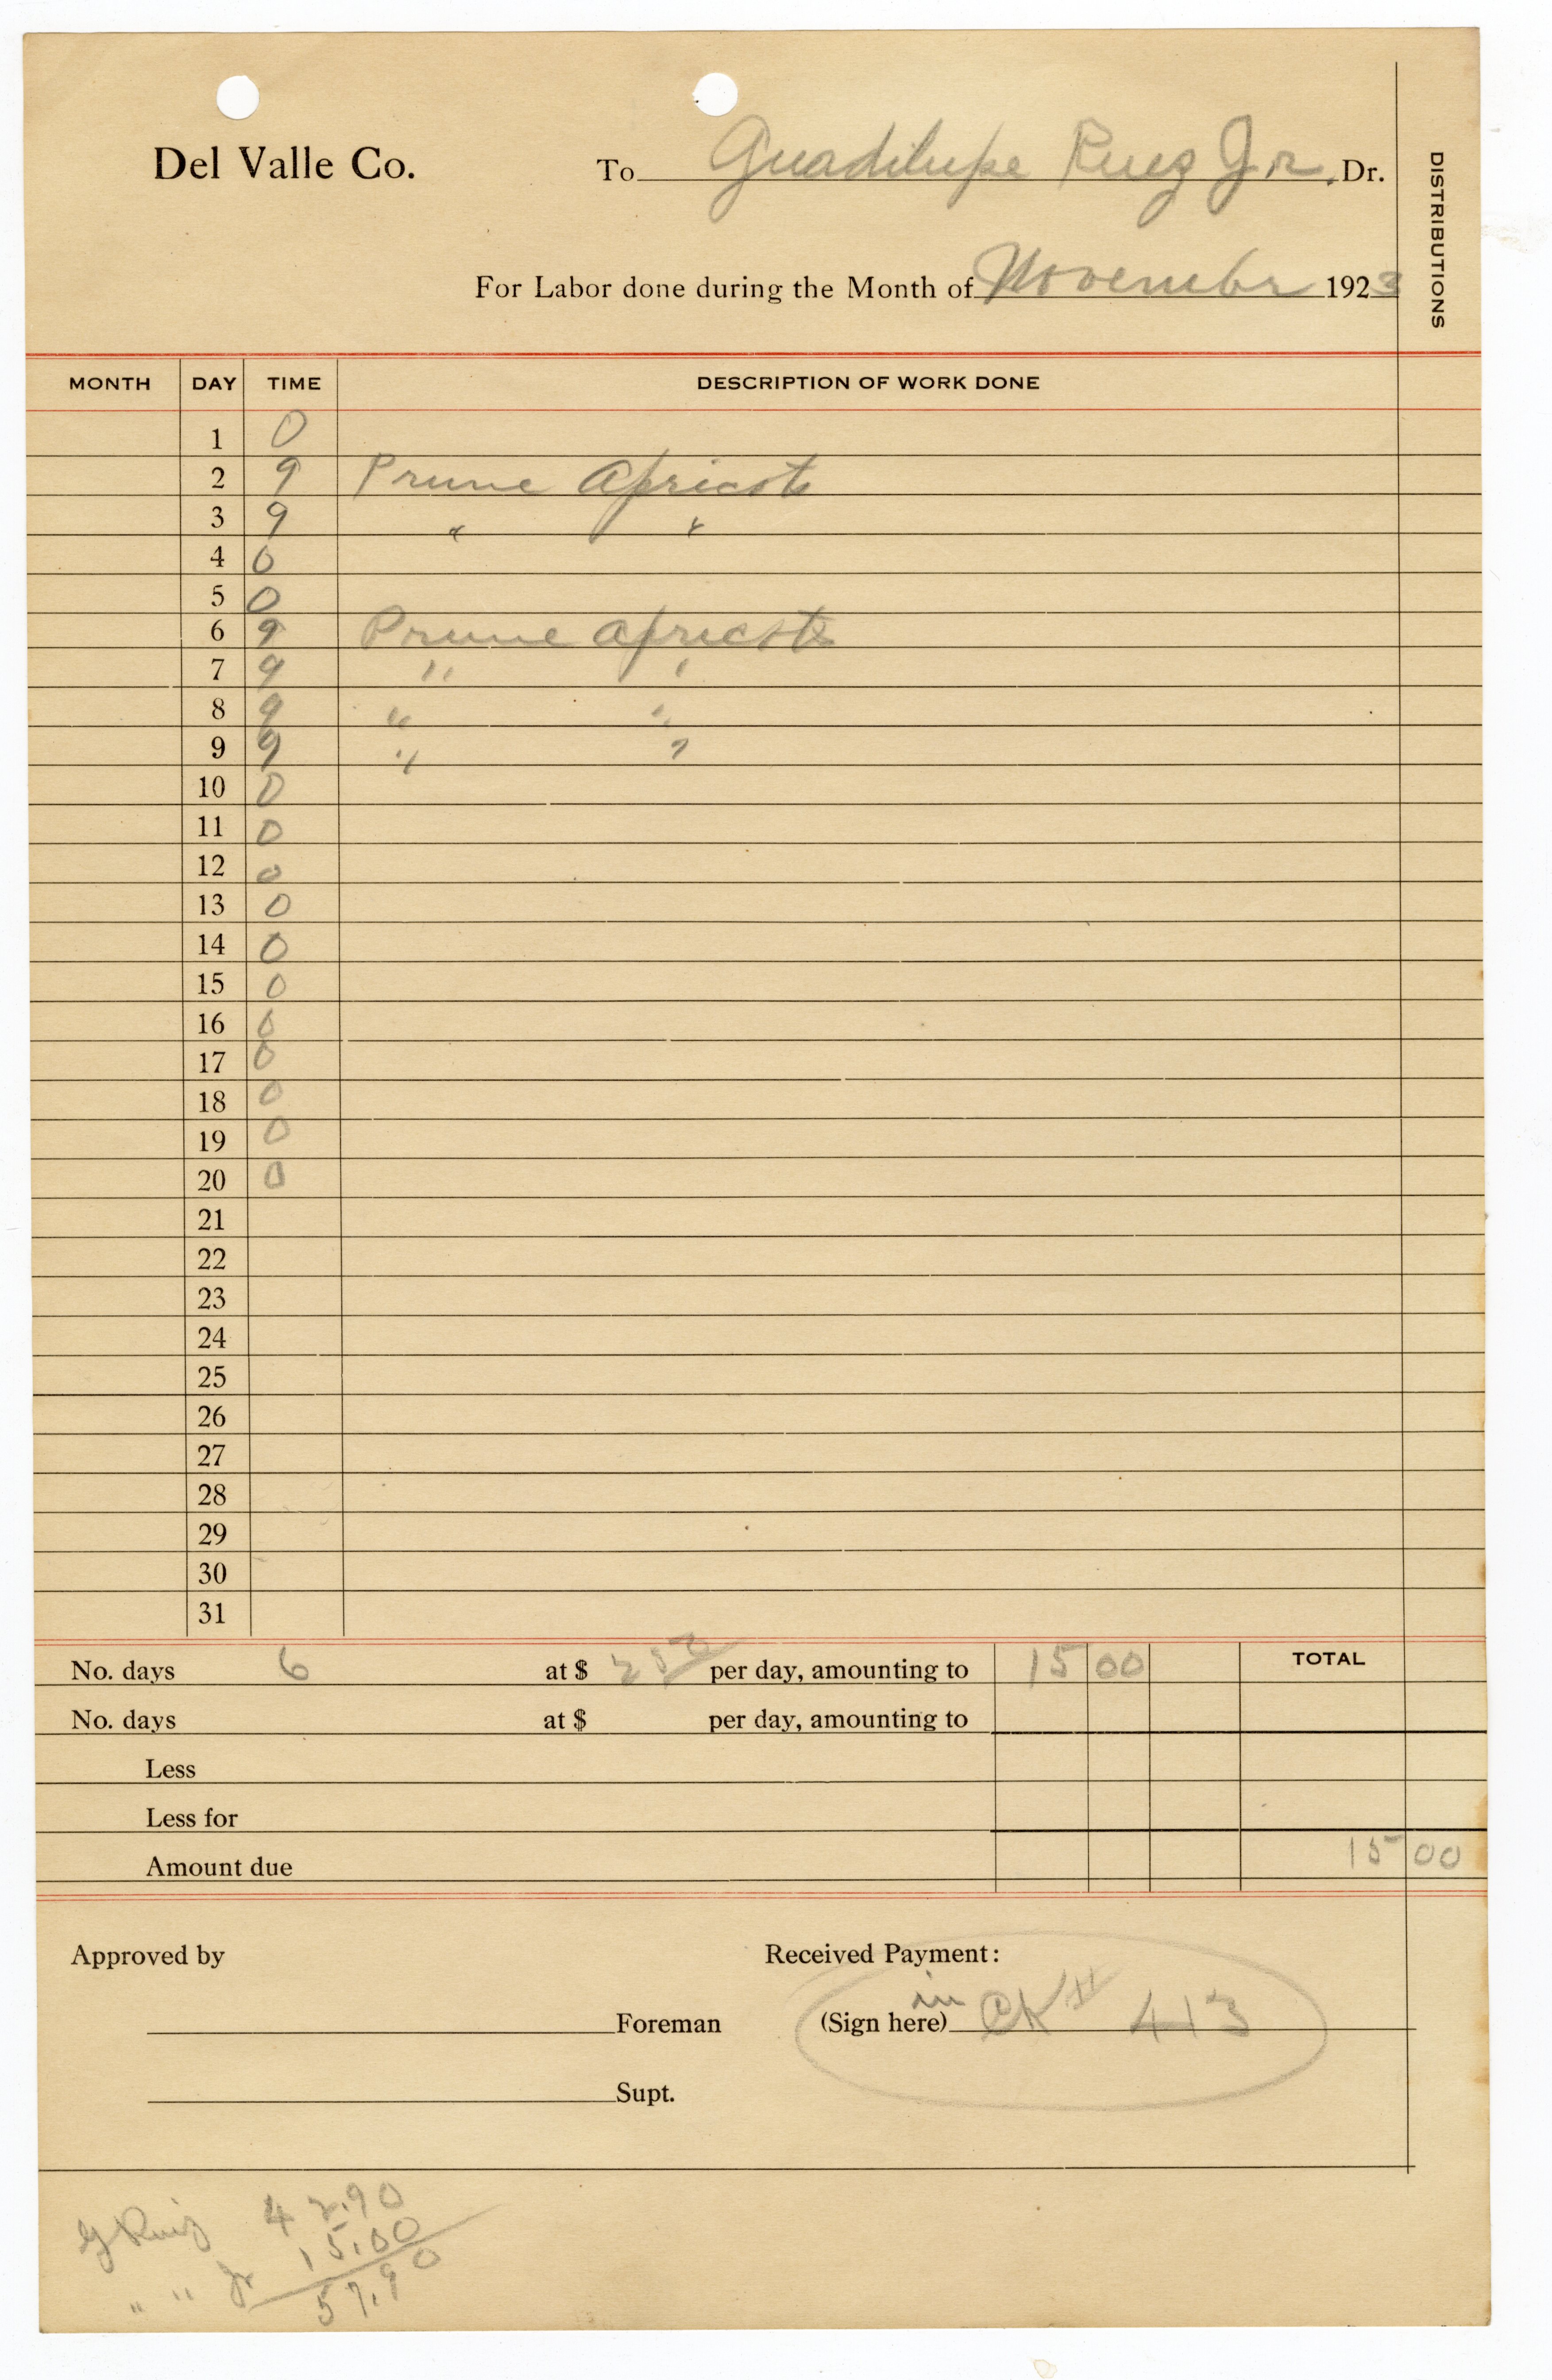 Del Valle Co. To Guadilupe Ruiz Jr. Dr.
DISTRIBUTIONS
For Labor done during the Month of November 1923
MONTH DAY TIME DESCRIPTION OF WORK DONE
1 0
2 9 Prune Apricots
3 9 " "
4 0
5 0
6 9 Prune apricots
7 9 " "
8 9 " "
9 9 " "
10 0
11 0
12 0
13 0
14 0
15 0
16 0
17 0
18 0
19 0
20 0
21
22
23
24
25
26
27
28
29
30
31
No. days 6 at $ 2 50 per day, amounting to 15 00 TOTAL
No. days at $ per day, amounting to
Less
Less for
Amount due 15 00
Approved by Received Payment:
Foreman (Sign here) in CK # 413
Supt.
G Ruiz 42.90
" " Jr 15.00
57.90